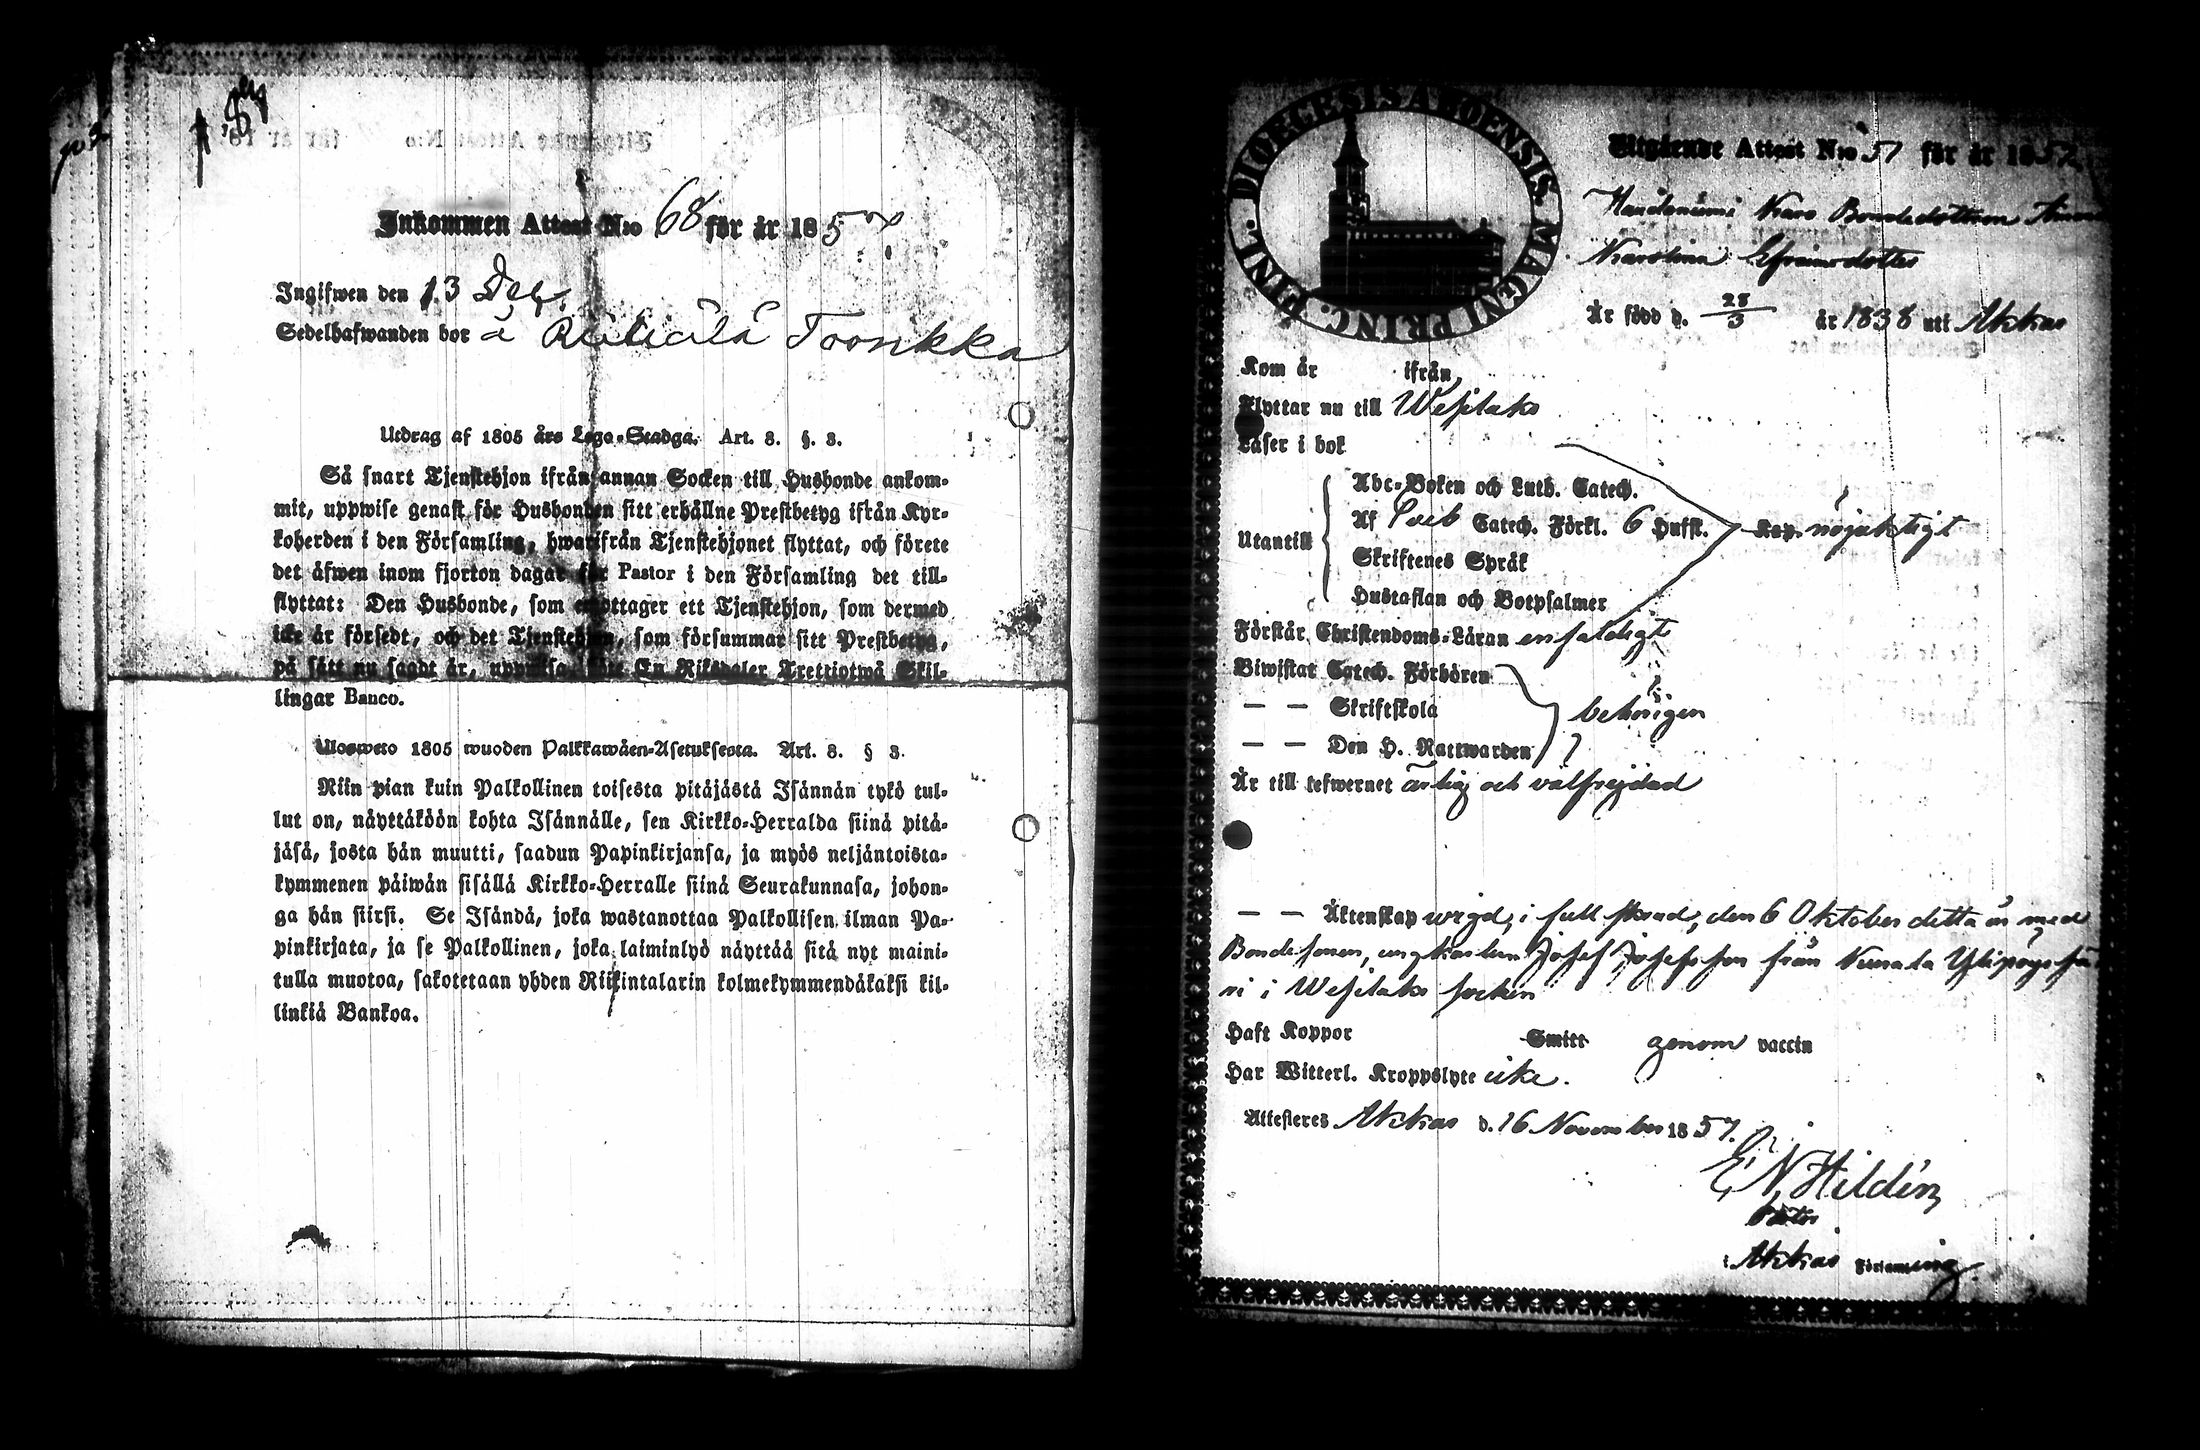 Inkommen Attest N:o 68 för år 1857
Ingifwen den 13 Dec.
Sedelhafwanden bor å Toonkka
Utdrag af 1805 års Lego-Stadga. Art. 8. §. 3.
Så snart Tjenstehjon ifrån annan Socken till Husbonde ankom-
mit, uppwise genast för Husbonden sitt erhållne Prestbetyg ifrån Kyr-
koherden i den Församling, hwarifrån Tjenstehjonet flyttat, och förete
det äfwen inom fjorton dagar för Pastor i den Församling det till-
flyttat: Den Husbonde, som emottager ett Tjenstehjon, som dermed
icke är försedt, och det Tjenstehjon, som försummar sitt Prestbetyg,
på sätt nu sagdt är, uppwisa, böte En Riksdaler Trettiotwå Skil-
lingar Banco.
Ulosweto 1805 wuoden Palkkawäen-Asetuksesta. Art. 8. § 3.
Niin pian kuin Palkollinen toisesta pitäjästä Isännän tykö tul-
lut on, näyttäköön kohta Isännälle, sen Kirkko-Herralda siinä pitä-
jäsä, josta hän muutti, saadun Papinkirjansa, ja myös neljäntoista-
kymmenen päiwän sisällä Kirkko-Herralle siinä Seurakunnasa, johon-
ga hän siirsi. Se Isändä, joka wastanottaa Palkollisen ilman Pa-
pinkirjata, ja se Palkollinen, joka laiminlyö näyttää sitä nyt maini-
tulla muotoa, sakotetaan yhden Riikintalarin kolmekymmendäkaksi kil-
linkiä Bankoa.
FINL. DIOECESIS ABOENSIS. MAGNI PRINC.
Utgående Attest N:o 51 för år 1857
Bondedottren
Karolina Efraimsdotter
Är född d. 28/3 år 1838 uti Akkas
Kom år ifrån
Flyttar nu till Wesilaks
Läser i bok
Utantill
Abc-Boken och Luth. Catech.
Af Catech. Förkl. 6 Hufst. Kap. nöjaktigt
Skriftenes Språk
Hustaflan och Botpsalmer
Förstår Christendoms-Läran enfaldigt
Biwistat Catech. Förhören
— — Skriftskola behörigen
— — Den H. Nattwarden
Är till lefwernet ärlig och välfrejdad
— — Äktenskap wigd, i full stånd, den 6 Oktober detta år med
Bondesonen, ungkarlen Josef Josefsson från
i Wesilaks socken
Haft Koppor Smitt genom vaccin
Har Witterl. Kroppslyte icke.
Attesteres Akkas d. 16 November 1857.
E N Hildén
Pastor
i Akkas Församling